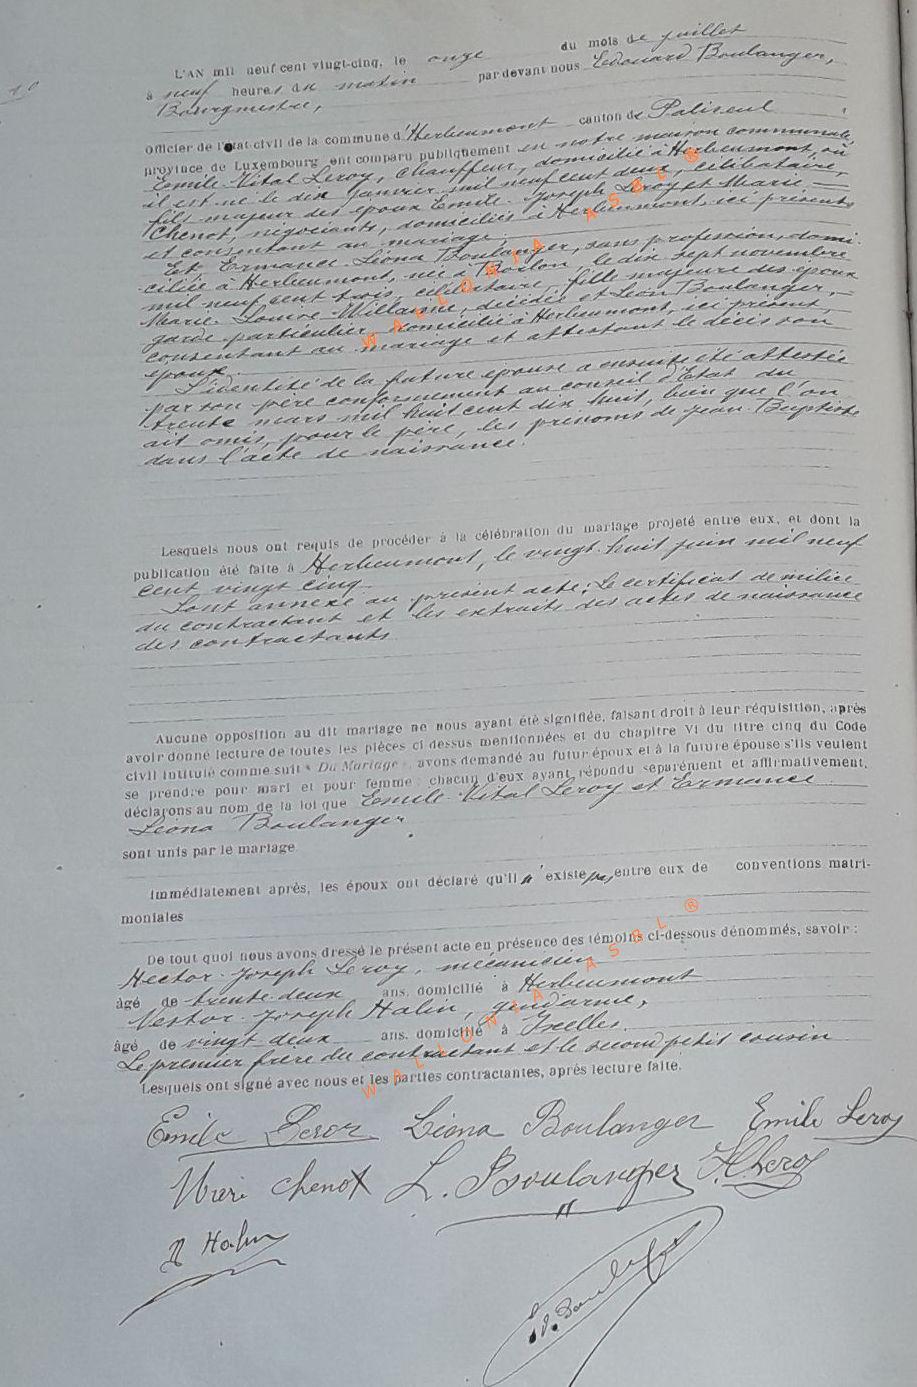 10
L'AN mil neuf cent vingt-cinq, le onze du mois de juillet
à neuf heures du matin par devant nous Edouard Boulanger,
Bourgmestre,
Officier de l'état-civil de la commune d'Herbeumont canton de Paliseul
province de Luxembourg ont comparu publiquement en notre maison communale,
Emile-Vital Leroy, chauffeur, domicilié à Herbeumont, où
il est né le dix janvier mil neuf cent deux, célibataire,
fils majeur des époux Emile-Joseph Leroy et Marie
Chenot, négociants, domiciliés à Herbeumont, ici présents
et consentant au mariage.
Et Ermance-Léona Boulanger, sans profession, domi-
ciliée à Herbeumont, née à le dix sept novembre
mil neuf cent trois, célibataire, fille majeure des époux
Marie-Louise Willaime, décédée et Léon Boulanger,
garde particulier, domicilié à Herbeumont, ici présent,
consentant au mariage et attestant le décès son
épouse.
L'identité de la future épouse a ensuite été attestée
par son père conformément au conseil d'Etat du
trente mars mil huit cent dix huit, bien que l'on
ait omis, pour le père, les prénoms de Jean-Baptiste
dans l'acte de naissance.
Lesquels nous ont requis de procéder à la célébration du mariage projeté entre eux, et dont la
publication été faite à Herbeumont, le vingt-huit juin mil neuf
cent vingt cinq
Sont annexé au présent acte: Le certificat de milice
du contractant et les extraits des actes de naissance
des contractants
Aucune opposition au dit mariage ne nous ayant été signifiée, faisant droit à leur réquisition, après
avoir donné lecture de toutes les pièces ci dessus mentionnées et du chapitre VI du titre cinq du Code
civil intitulé comme suit « Du Mariage », avons demandé au futur époux et à la future épouse s'ils veulent
se prendre pour mari et pour femme: chacun d'eux ayant répondu séparément et affirmativement,
déclarons au nom de la loi que Emile-Vital Leroy et Ermance
Léona Boulanger
sont unis par le mariage
Immédiatement après, les époux ont déclaré qu'il n'existe pas, entre eux de conventions matri-
moniales
De tout quoi nous avons dressé le présent acte en présence des témoins ci-dessous dénommés, savoir :
Hector-Joseph Leroy, mécanicien
âgé de trente-deux ans, domicilié à Herbeumont
Nestor-Joseph Halin, gendarme,
âgé de vingt deux ans, domicilié à Ixelles.
Le premier frère du contractant et le second petit cousin
Lesquels ont signé avec nous et les parties contractantes, après lecture faite.
Emile Leroy Léona Boulanger Emile Leroy
Chenot L. Boulanger Leroy
Halin
Ed. Boulanger
WALLONIA ASBL ®
WALLONIA ASBL ®